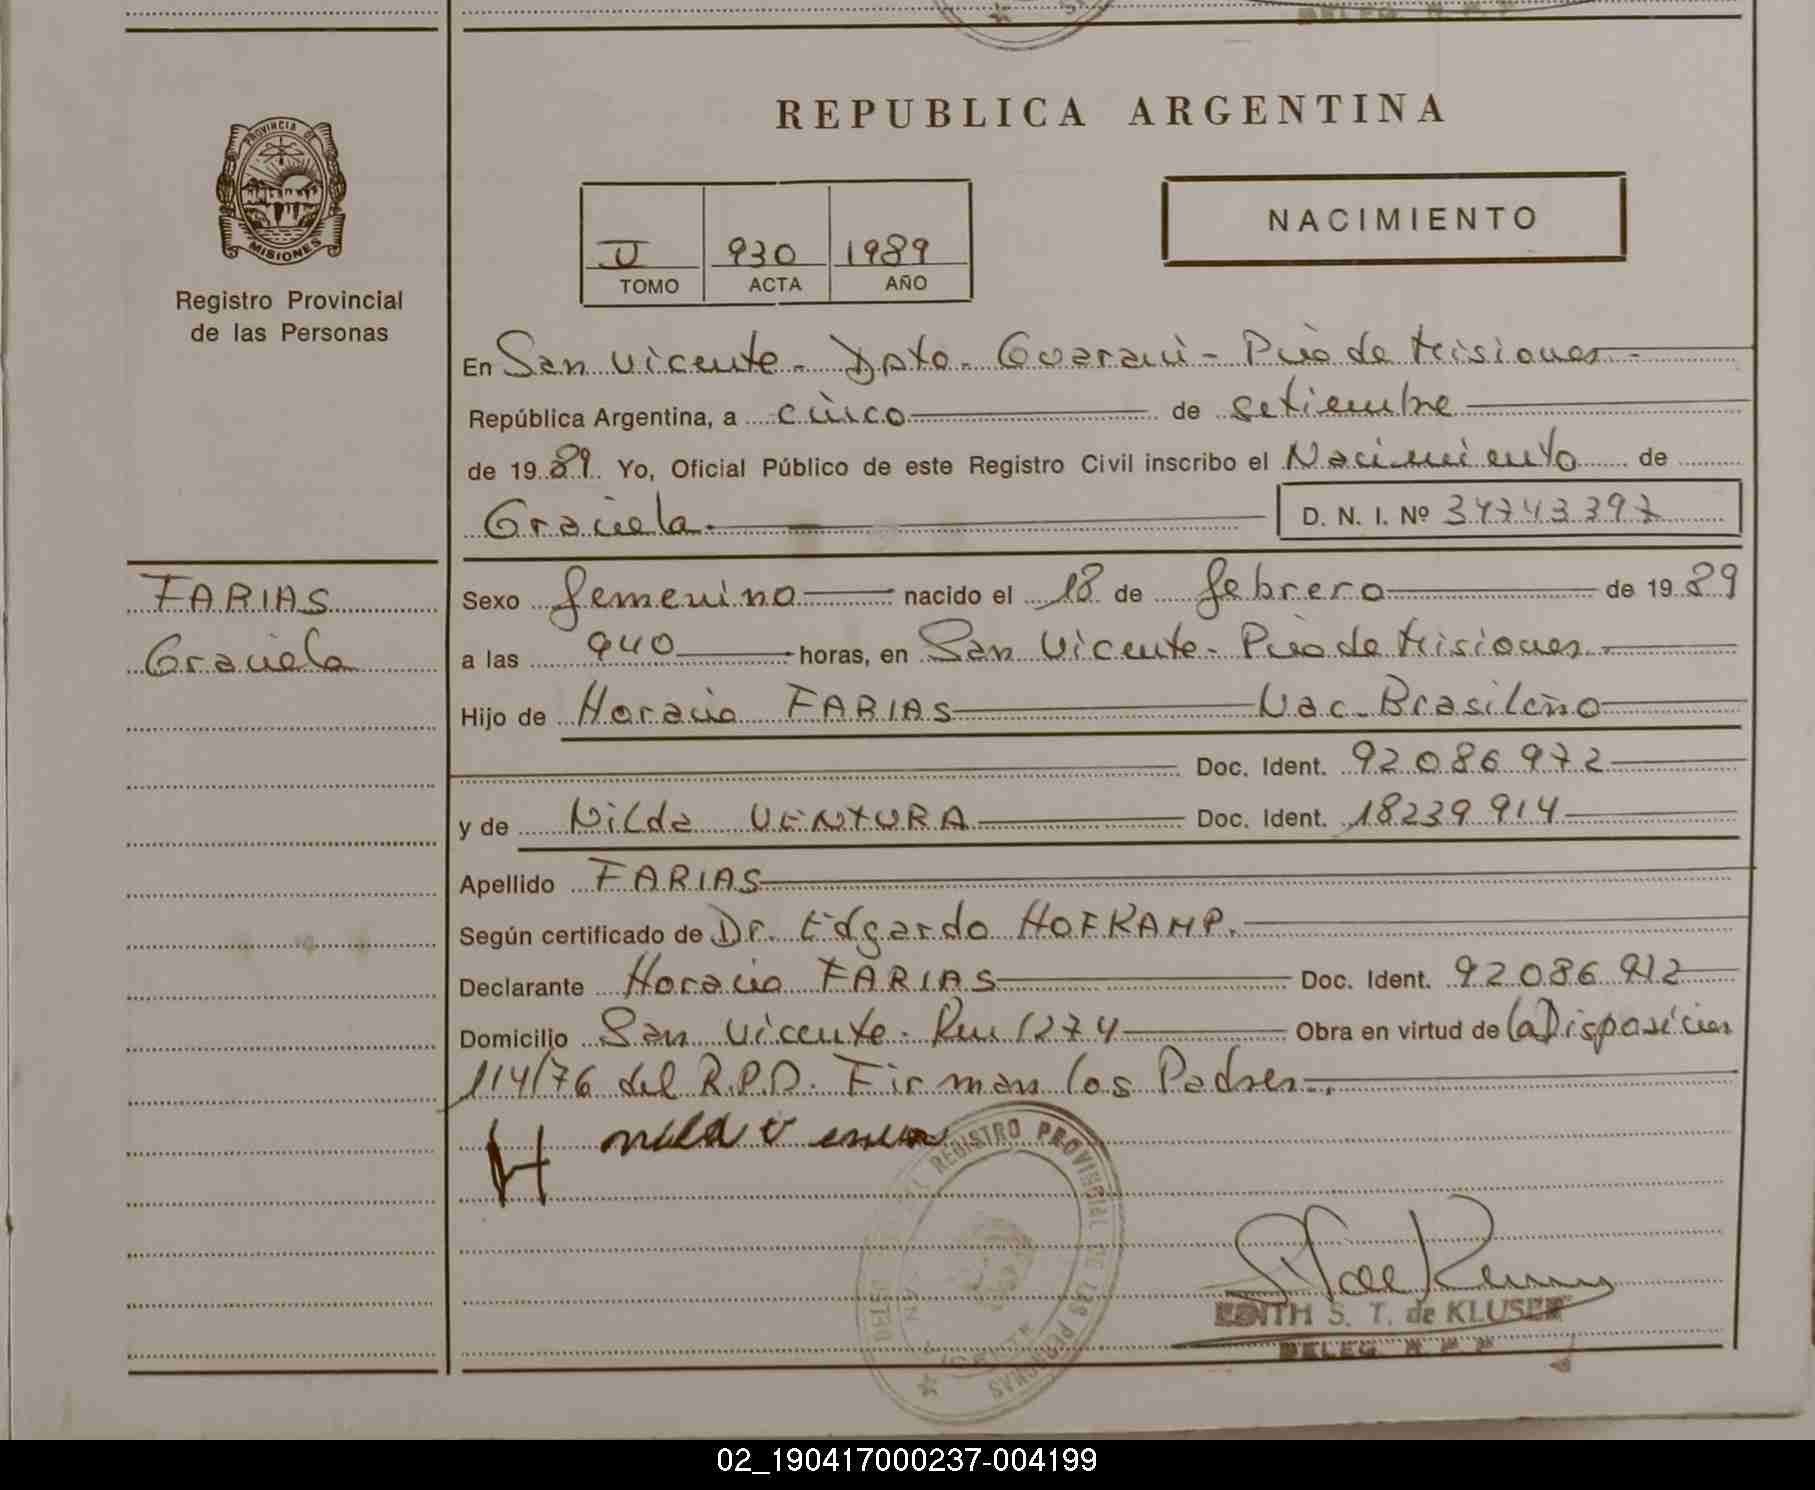 REPUBLICA ARGENTINA
PROVINCIA DE
MISIONES
Registro Provincial
de las Personas
II 930 1989
TOMO ACTA AÑO
NACIMIENTO
En San Vicente - Dpto - Guaraní - Pcia de Misiones
República Argentina, a cinco de setiembre
de 1989 Yo, Oficial Público de este Registro Civil inscribo el Nacimiento de
Graciela D. N. I. Nº 34743397
FARIAS
Graciela
Sexo femenino nacido el 18 de febrero de 1989
a las 940 horas, en San Vicente - Pcia de Misiones
Hijo de Horacio FARIAS Nac. Brasileño
Doc. Ident. 92086972
y de Nilda VENTURA Doc. Ident. 18239914
Apellido FARIAS
Según certificado de Dr. Edgardo HOFKAMP.
Declarante Horacio FARIAS Doc. Ident. 92086912
Domicilio San Vicente - Km 1274 Obra en virtud de la Disposición
114/76 del R.P.P. Firman los Padres
H
REGISTRO PROVINCIAL DE LAS PERSONAS
EDITH S. T. de KLUSER
DELEG. R P P
02_190417000237-004199